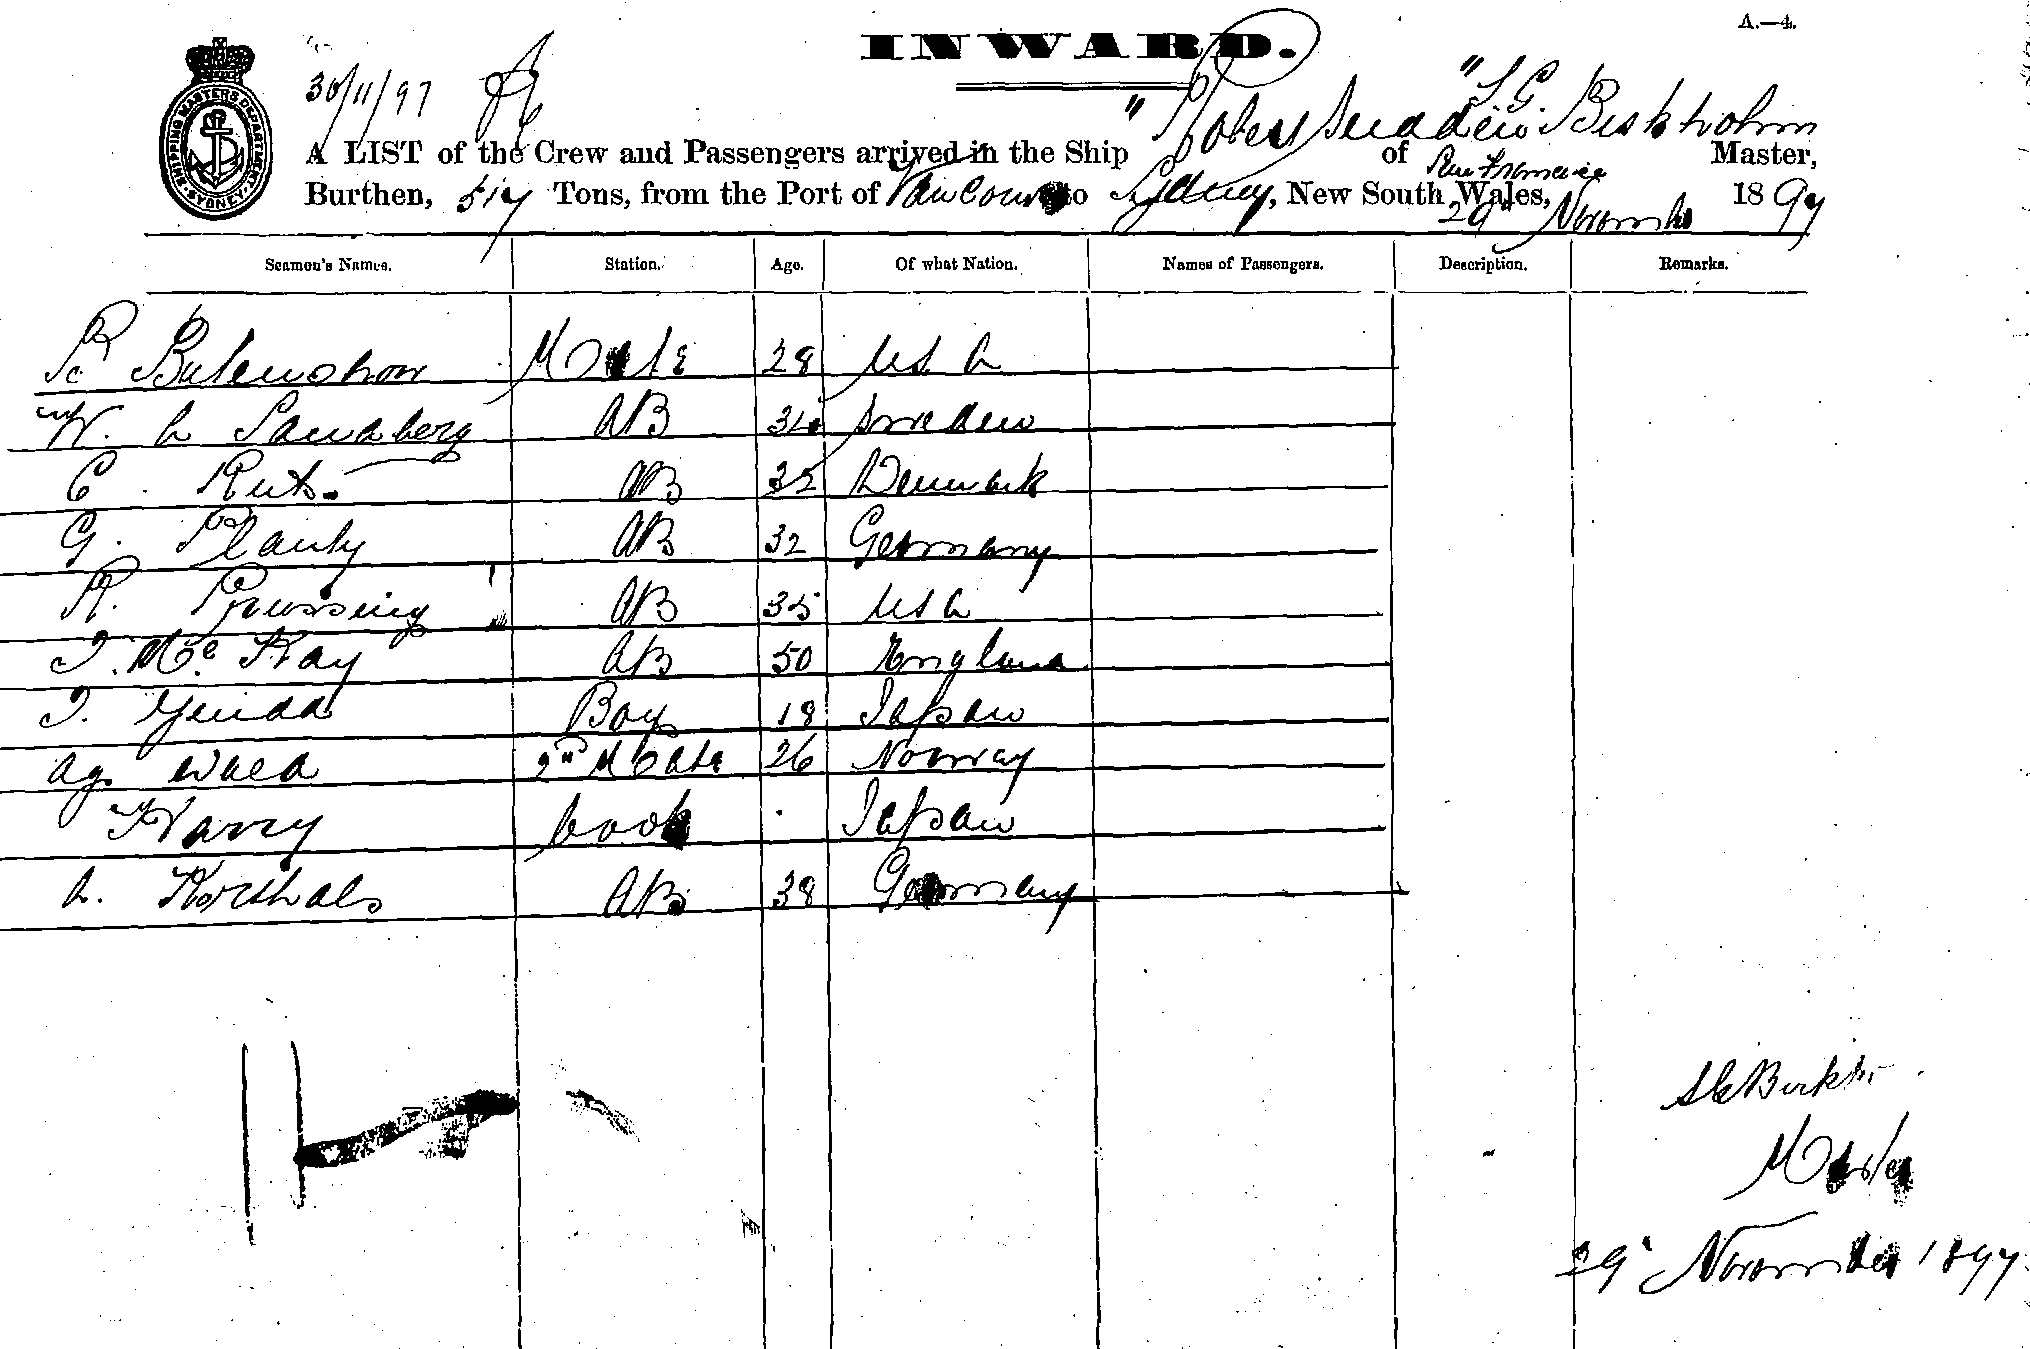 A.—4.
INWARD.
SHIPPING MASTERS DEPARTMENT SYDNEY
30/11/97
"Robert Sudden" S. G. Birkholm
A LIST of the Crew and Passengers arrived in the Ship of San Francisco Master,
Burthen, 517 Tons, from the Port of Vancouver to Sydney, New South Wales, 29 November 1897
Seamen's Names. Station. Age. Of what Nation. Names of Passengers. Description. Remarks.
R Mate 28 USA
W. A Sandberg AB 34 Sweden
C. AB 32 Denmark
G. AB 32 Germany
R. AB 35 USA
J. McKay AB 50 England
J. Boy 18 Japan
2nd Mate 26 Norway
Harry Cook Japan
A. Korthals AB 38 Germany
Master
29 November 1897